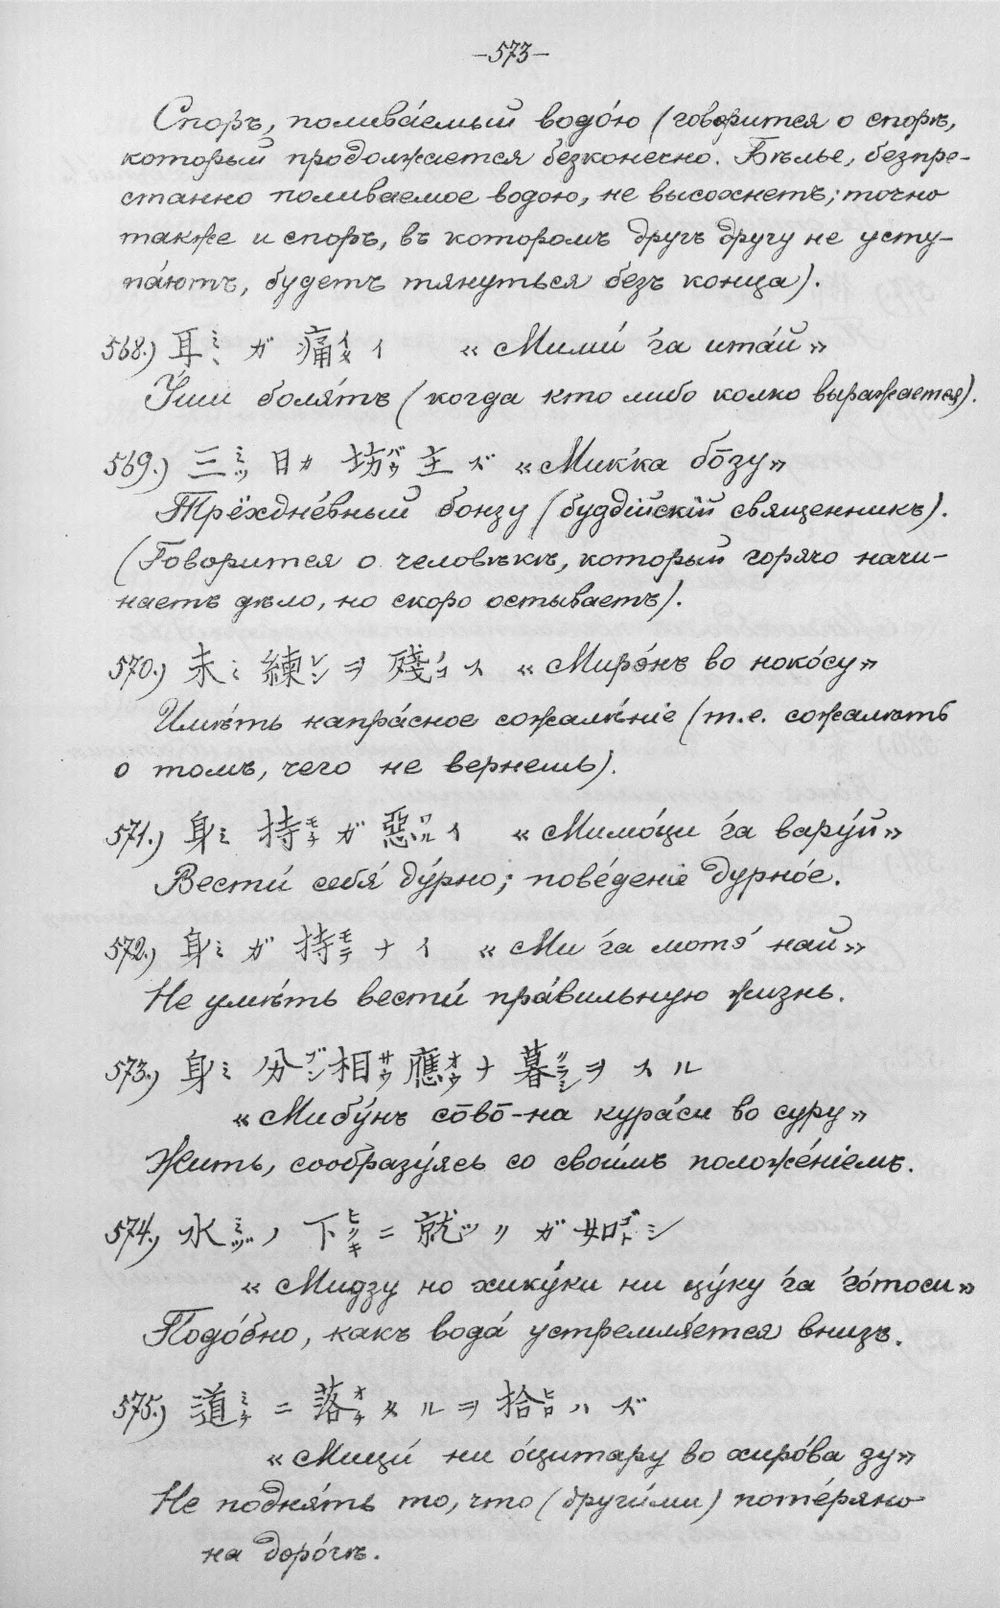 –573–
Споръ, полива́емый водо́ю (говорится о спорѣ,
который продолжается безконечно. Бѣлье, безпре-
станно поливаемое водою, не высохнетъ; точно
также и споръ, въ которомъ другъ другу не усту-
па́ютъ, будетъ тянуться безъ конца).
568.) 耳ミミ ガ 痛イタ イ «Мими́ 'га ита́й»
У́ши боля́тъ (когда кто либо колко выражается).
569.) 三ミッ 日カ 坊バウ 主 ズ «Микка бо̄зу»
Трёхдне́вный бонзу (буддійскій священникъ).
(Говорится о человѣкѣ, который горячо начи-
наетъ дѣло, но скоро остываетъ).
570.) 未ミ 練レン ヲ 殘ノコ ス «Мирэ́нъ во ноко́су»
Имѣ́ть напра́сное сожалѣ́ніе (т.е. сожалѣть
о томъ, чего не вернешь).
571.) 身ミ 持モチ ガ 惡ワル イ «Мимо́ци 'га вару́й»
Вести́ себя́ ду́рно; пове́деніе дурно́е.
572.) 身ミ ガ 持モテ ナ イ «Ми 'га мотэ́ най»
Не умѣ́ть вести́ пра́вильную жизнь.
573.) 身ミ 分ブン 相サウ 應オウ ナ 暮クラシ ヲ スル
«Мибу́нъ со̄во̄-на кура́си во суру»
Жить, сообразу́ясь со свои́мъ положе́ніемъ.
574.) 水ミヅ ノ 下ヒクキ ニ 就ツ ク ガ 如ゴト シ
«Мидзу но хику́ки ни цу́ку 'га 'го́тоси»
Подо́бно, какъ вода́ устремля́ется внизъ.
575.) 道ミチ ニ 落オチ タ ル ヲ 拾ヒロ ハ ズ
«Мици́ ни о́цитару во хиро́ва зу»
Не подня́ть то, что (други́ми) поте́ряно
на доро́гѣ.